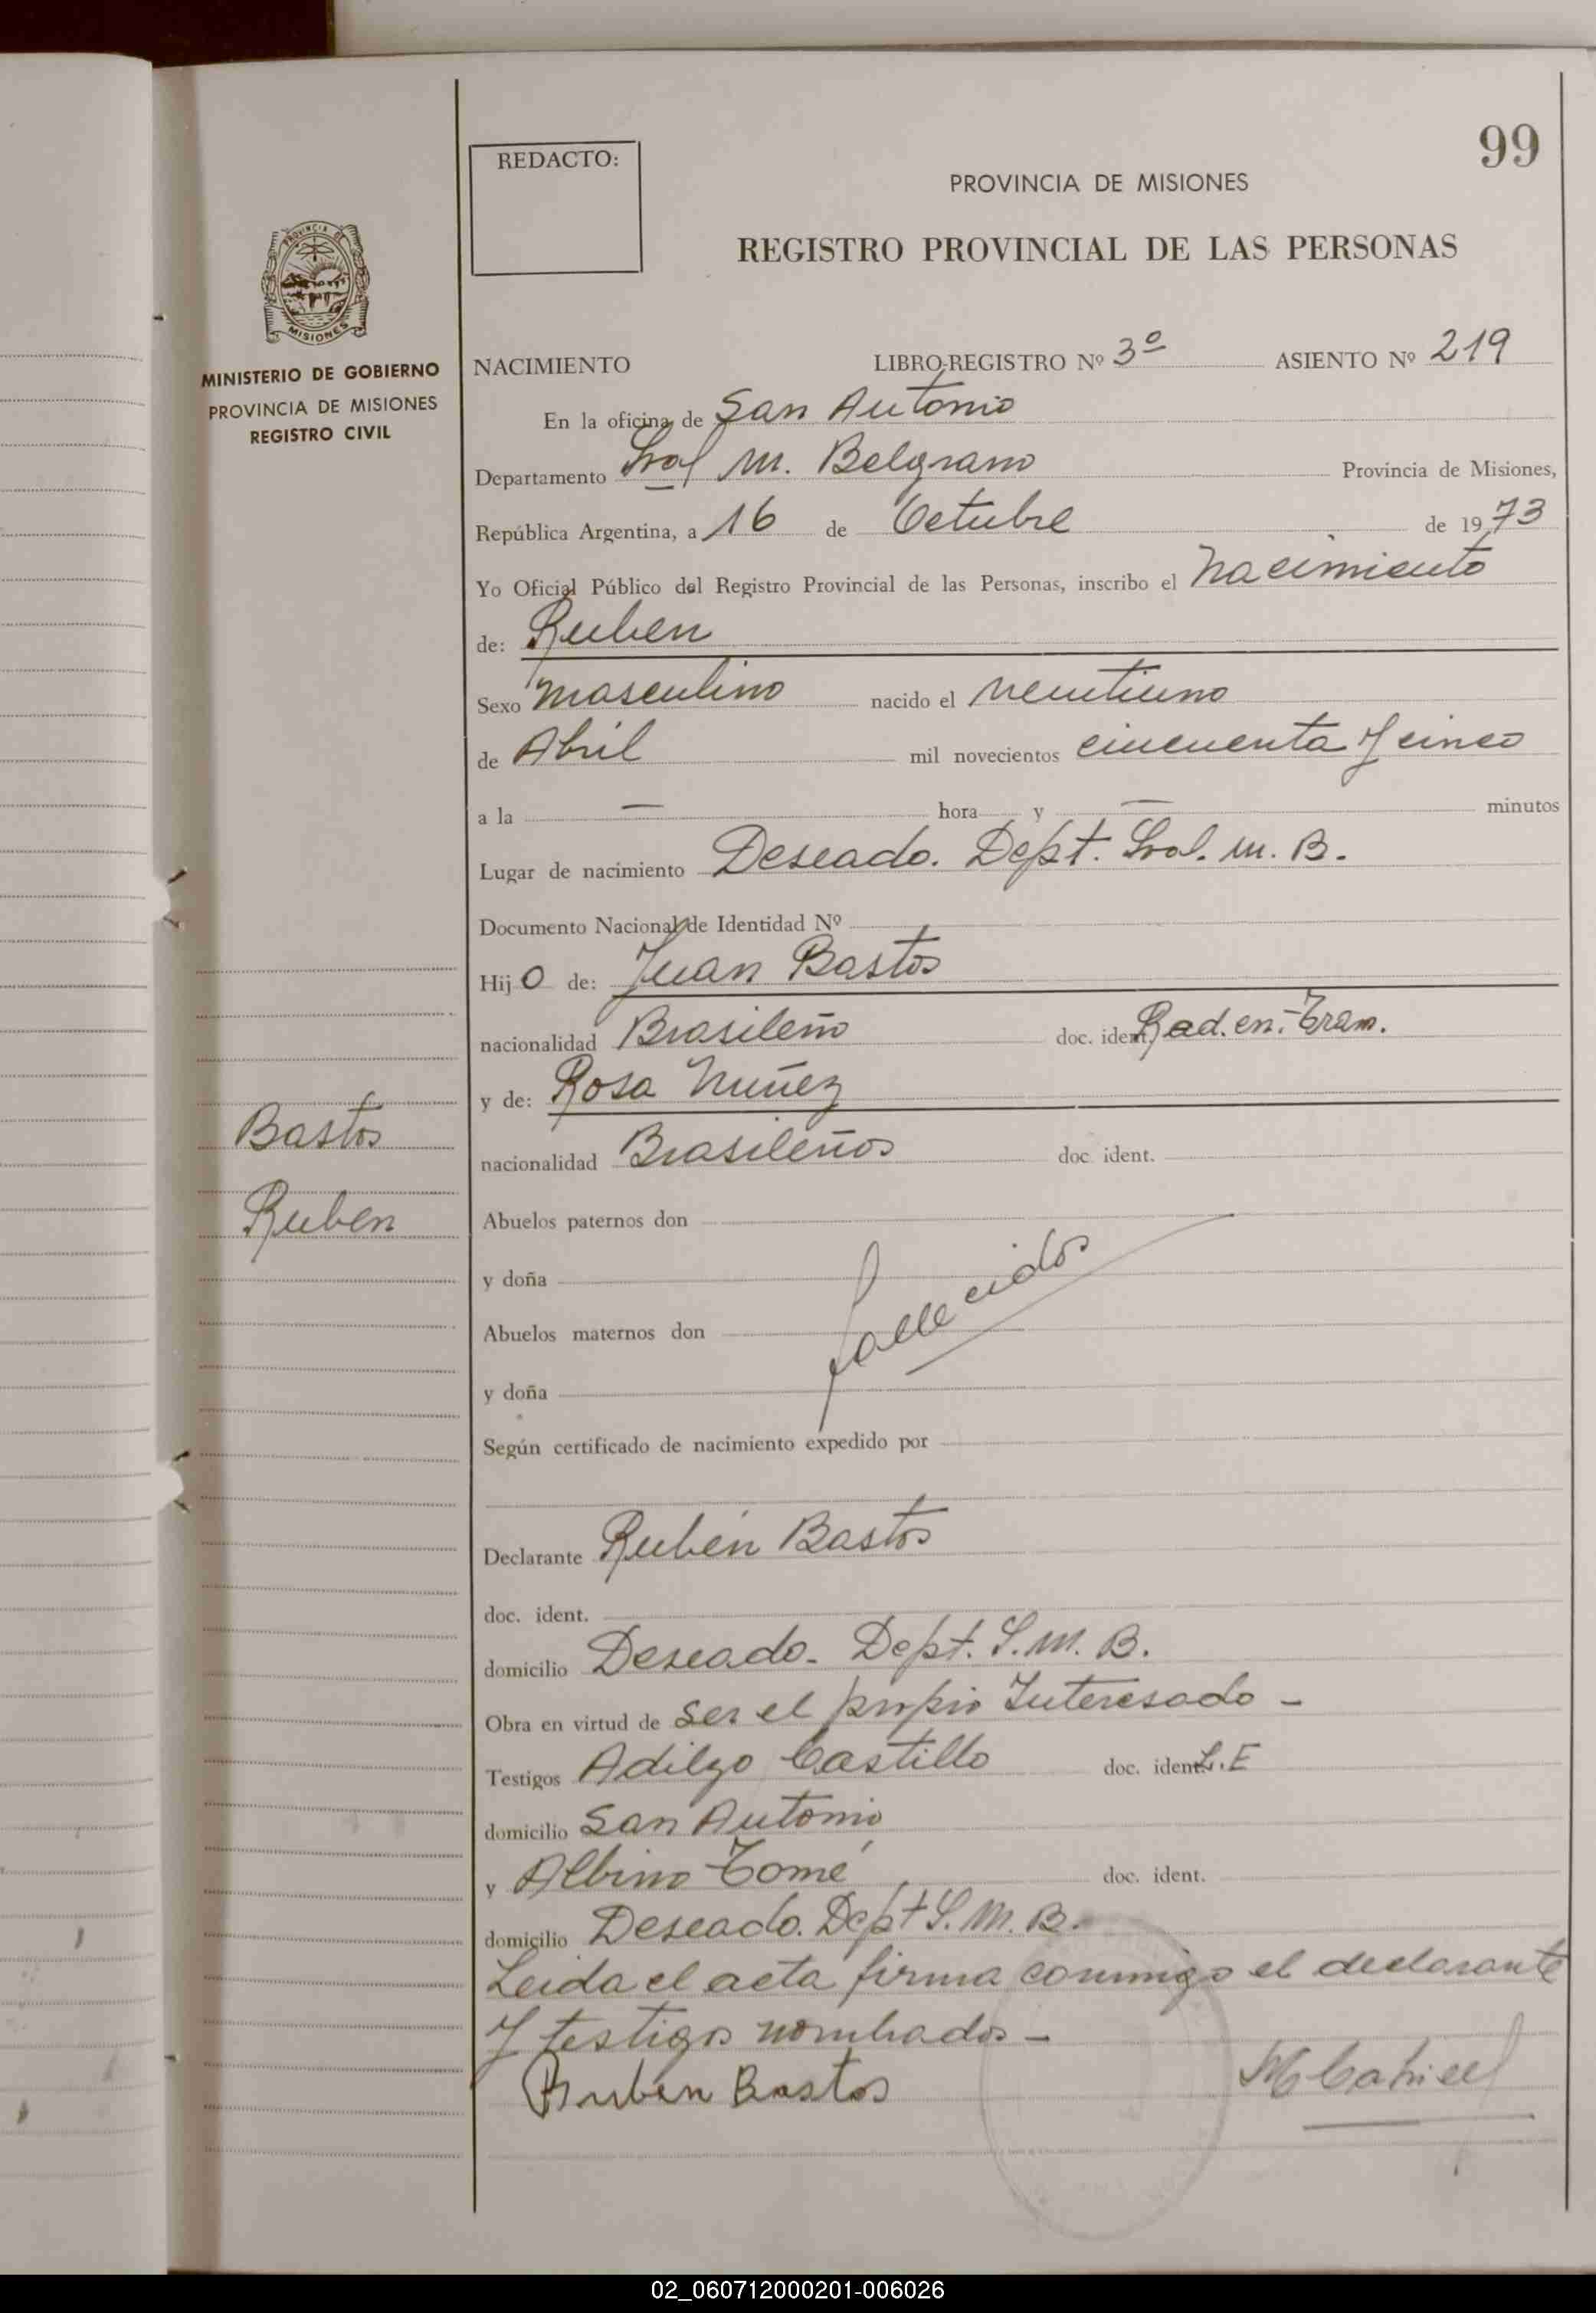 99
REDACTO:
PROVINCIA DE MISIONES
REGISTRO PROVINCIAL DE LAS PERSONAS
PROVINCIA DE
MISIONES
MINISTERIO DE GOBIERNO
PROVINCIA DE MISIONES
REGISTRO CIVIL
NACIMIENTO LIBRO-REGISTRO Nº 3º ASIENTO Nº 219
En la oficina de San Antonio
Departamento Gral M. Belgrano Provincia de Misiones,
República Argentina, a 16 de Octubre de 19 73
Yo Oficial Público del Registro Provincial de las Personas, inscribo el Nacimiento
de: Ruben
Sexo masculino nacido el veintiuno
de Abril mil novecientos cincuenta y cinco
a la — hora y — minutos
Lugar de nacimiento Deseado. Dept. Gral. M. B.
Documento Nacional de Identidad Nº
Hij o de: Juan Bastos
nacionalidad Brasileño doc. ident. Rad. en. Tram.
y de: Rosa Nuñez
nacionalidad Brasileños doc. ident.
Bastos
Ruben
Abuelos paternos don
y doña
fallecidos
Abuelos maternos don
y doña
Según certificado de nacimiento expedido por
Declarante Rubén Bastos
doc. ident.
domicilio Deseado - Dept. G. M. B.
Obra en virtud de ser el propio Interesado -
Testigos Adilzo Castillo doc. ident. L. E
domicilio San Antonio
y Albino Tomé doc. ident.
domicilio Deseado. Dept G. M. B.
Leida el acta firma conmigo el declarante
y testigos nombrados -
Ruben Bastos
02_060712000201-006026